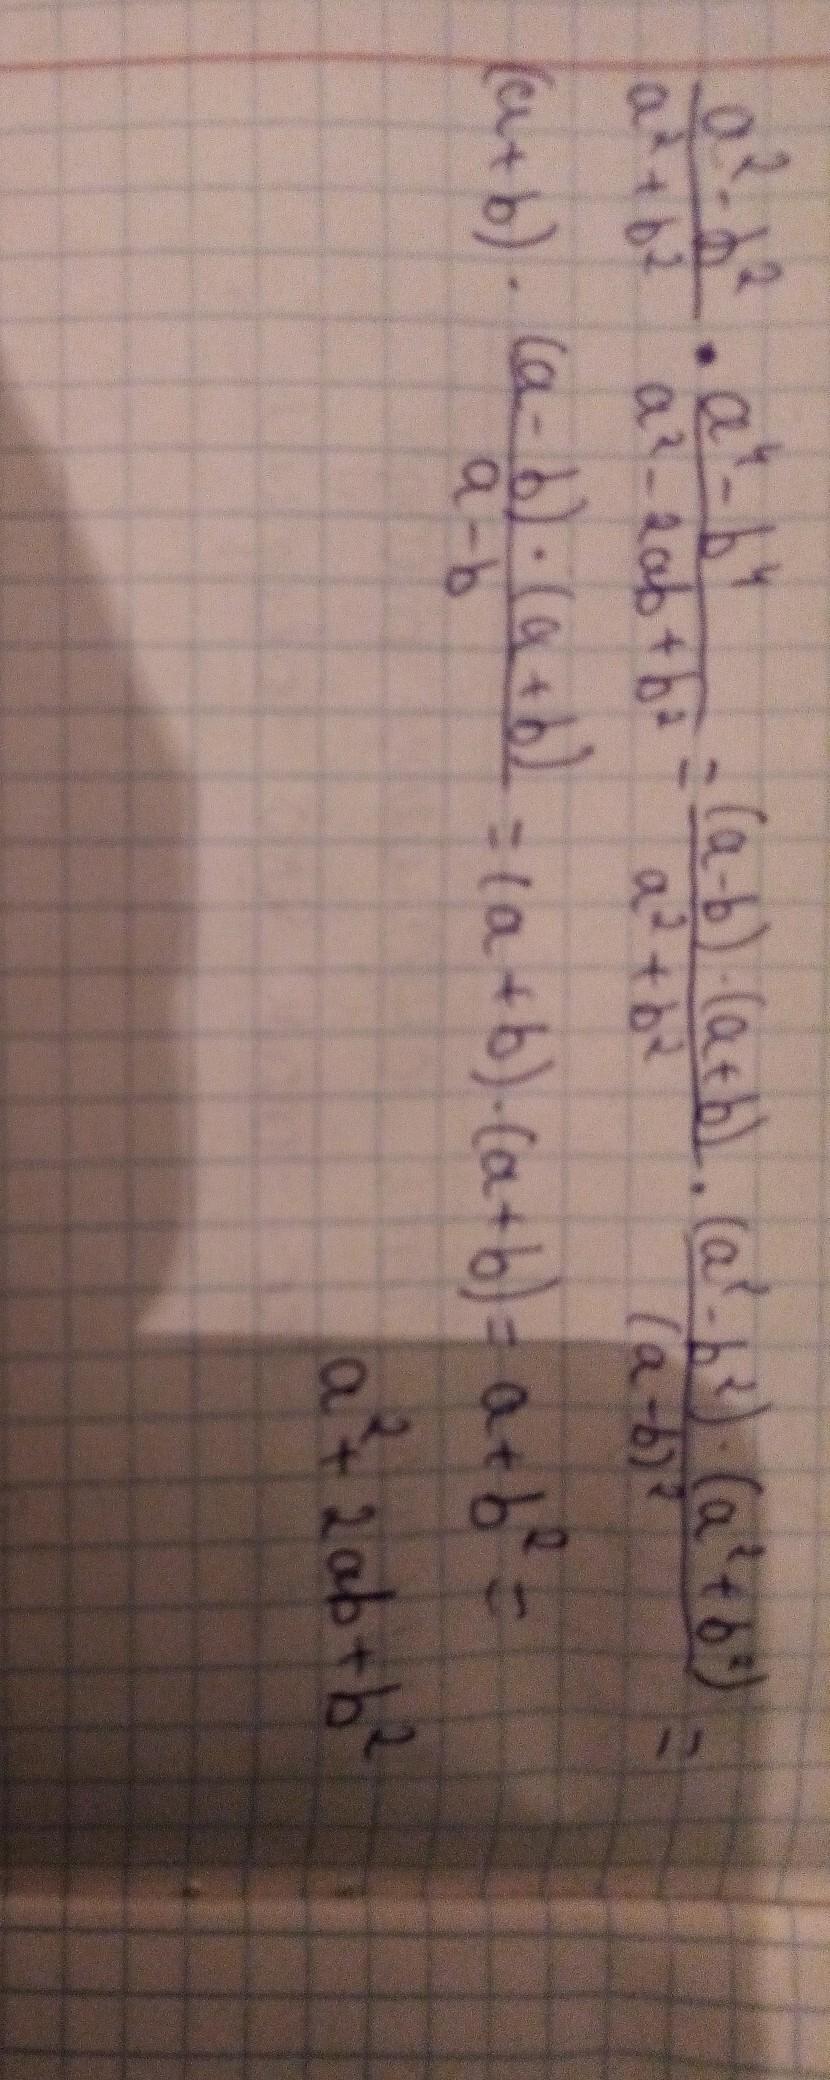 (a² - b²)/(a² + b²) · (a⁴ - b⁴)/(a² - 2ab + b²) = ((a-b)·(a+b))/(a² + b²) · ((a² - b²)·(a² + b²))/(a-b)² =
(a+b) · ((a-b)·(a+b))/(a-b) = (a+b)·(a+b) = a+b² =
a² + 2ab + b²